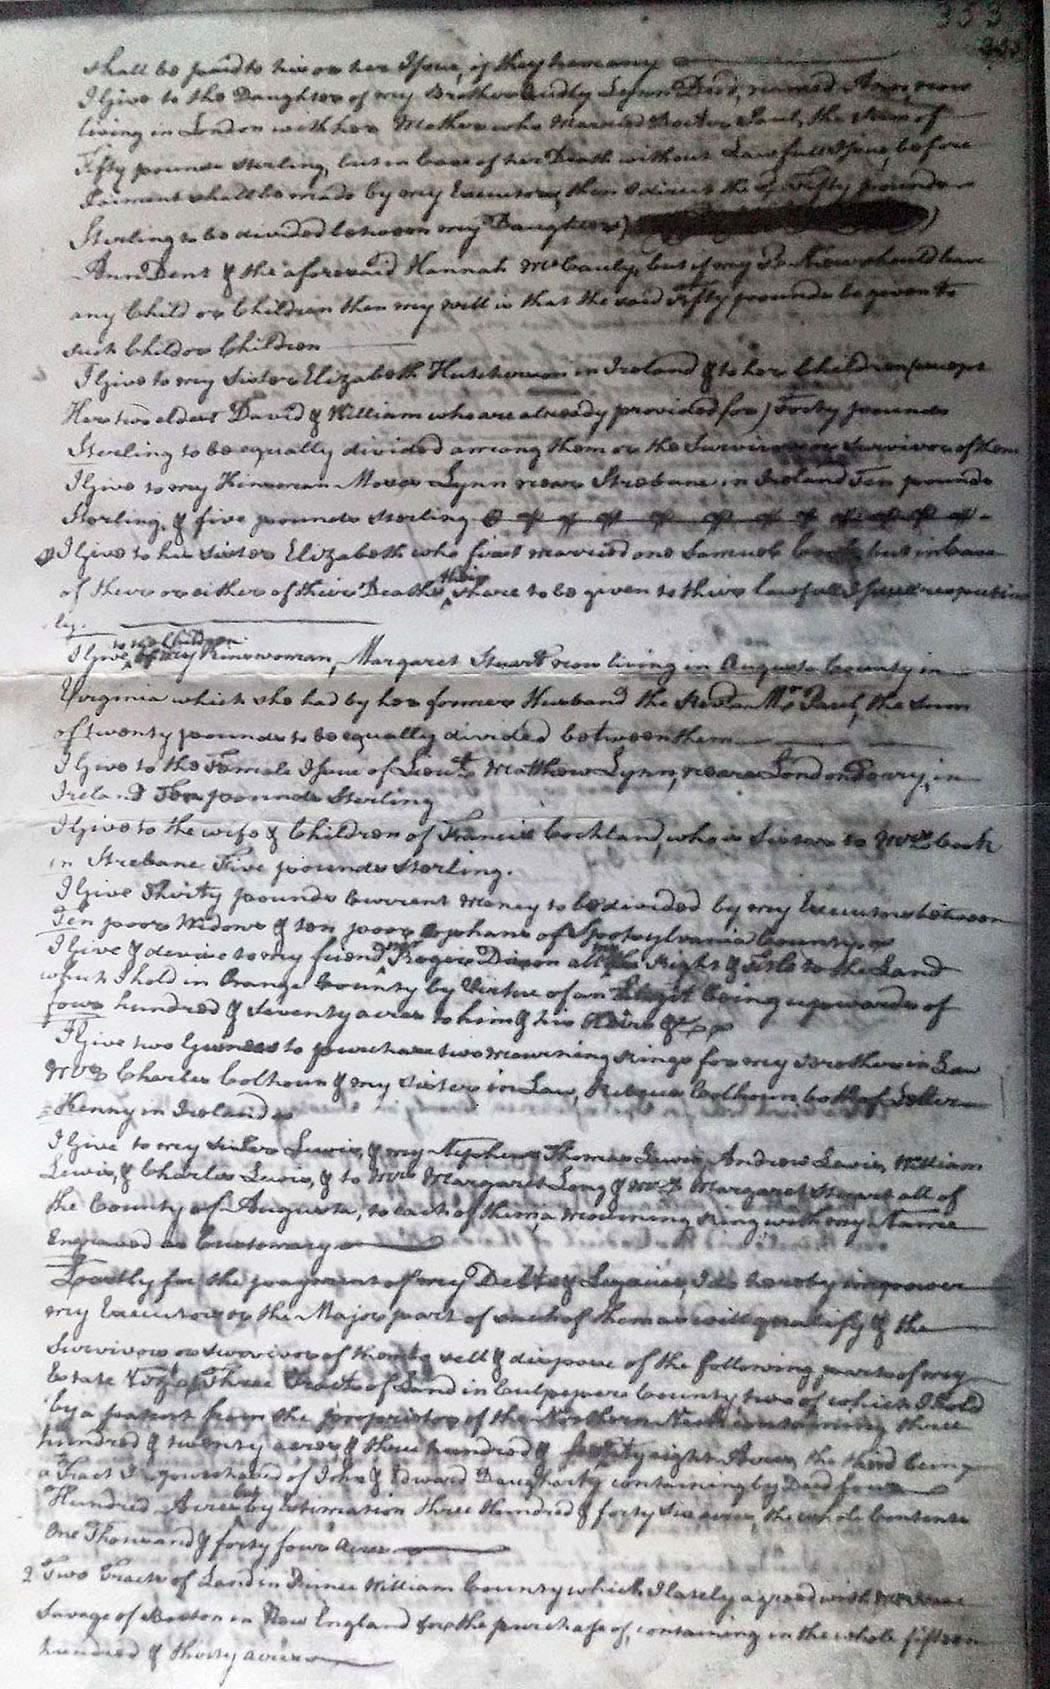 353
shall be paid to his or her Issue, if they have any
I Give to the Daughter of my Brother Audly Lynn Dec'd, named Ann, now
living in London with her Mother who Married Doctor Paul, the Sum of
Fifty pounds sterling, but in Case of her Death without Lawfull Issue, before
Paiment shall be made by my Executors, then I direct the sd Fifty pounds
Sterling to be divided between my Daughter
Ann Dent & the aforesaid Hannah McCauly, but if my should leave
any Child or Children then my will is that the said Fifty pounds be given to
such Child or Children
I Give to my Sister Elizabeth Hutcheson in Ireland & to her Children (except
Her two eldest David & William who are already provided for) Forty pounds
Sterling to be equally divided among them or the Survivors or Survivor of them
I Give to my Kinsman Moses Lynn near Strebane in Ireland Ten pounds
Sterling, & five pounds sterling
I Give to his sister Elizabeth who first married one Samuel but in Case
of theirs or either of their Deaths their share to be given to their lawfull Issue respective
ly.
I Give to the Children of my Kinswoman, Margaret Stuart now living in Augusta County in
Virginia which she had by her former Husband the Paul, the Sum
of twenty pounds to be equally divided between them
I Give to the Female Issue of Lieut Matthew Lynn, near London Derry, in
Ireland Ten pounds Sterling
I Give to the wife & Children of Francis Cockland, who is Sister to Mrs Cook
in Strebane Five pounds Sterling.
I Give Thirty pounds Current money to be divided by my Executors between
Ten poor Widows & ten poor orphans of Spotsylvania County
I Give & devise to my friend Mr Roger Dixon all my Right & Title to the Land
which I hold in Orange County by Virtue of an Elegit being upwards of
four hundred & seventy acres to him & his Heirs &c
I Give two Guineas to purchase two mourning rings for my Brother in Law
Mr Charles Colhoun & my sister in Law, Rebecca Colhoun both of Letter
Kenny in Ireland
I Give to my sister Lewis, & my Nephews Thomas Lewis, Andrew Lewis, William
Lewis, & Charles Lewis, & to Mrs Margaret Long & Mrs Margaret Stewart all of
the County of Augusta, to each of them a mourning ring with my Name
Engraved as Customary
Lastly for the payment of my Debts & Legacies, I do hereby impower
my Executors or the Major part of such of them as will qualify & the
Survivors or survivor of them to sell & dispose of the following parts of my
Estate Three Tracts of Land in Culpepper County, two of which I hold
by a patent from the proprietor of the Northern Neck containing three
hundred & twenty acres & three hundred & eight Acres, the third being
a Tract I purchased of John & Edward Daugharty containing by Deed four
Hundred Acres but by Estimation three Hundred & forty six acres, the whole Contents
One Thousand & forty four acres
2 Two Tracts of Land in Prince William County which I lately agreed with
Savage of Boston in New England for the purchase of, containing in the whole fifteen
hundred & thirty acres